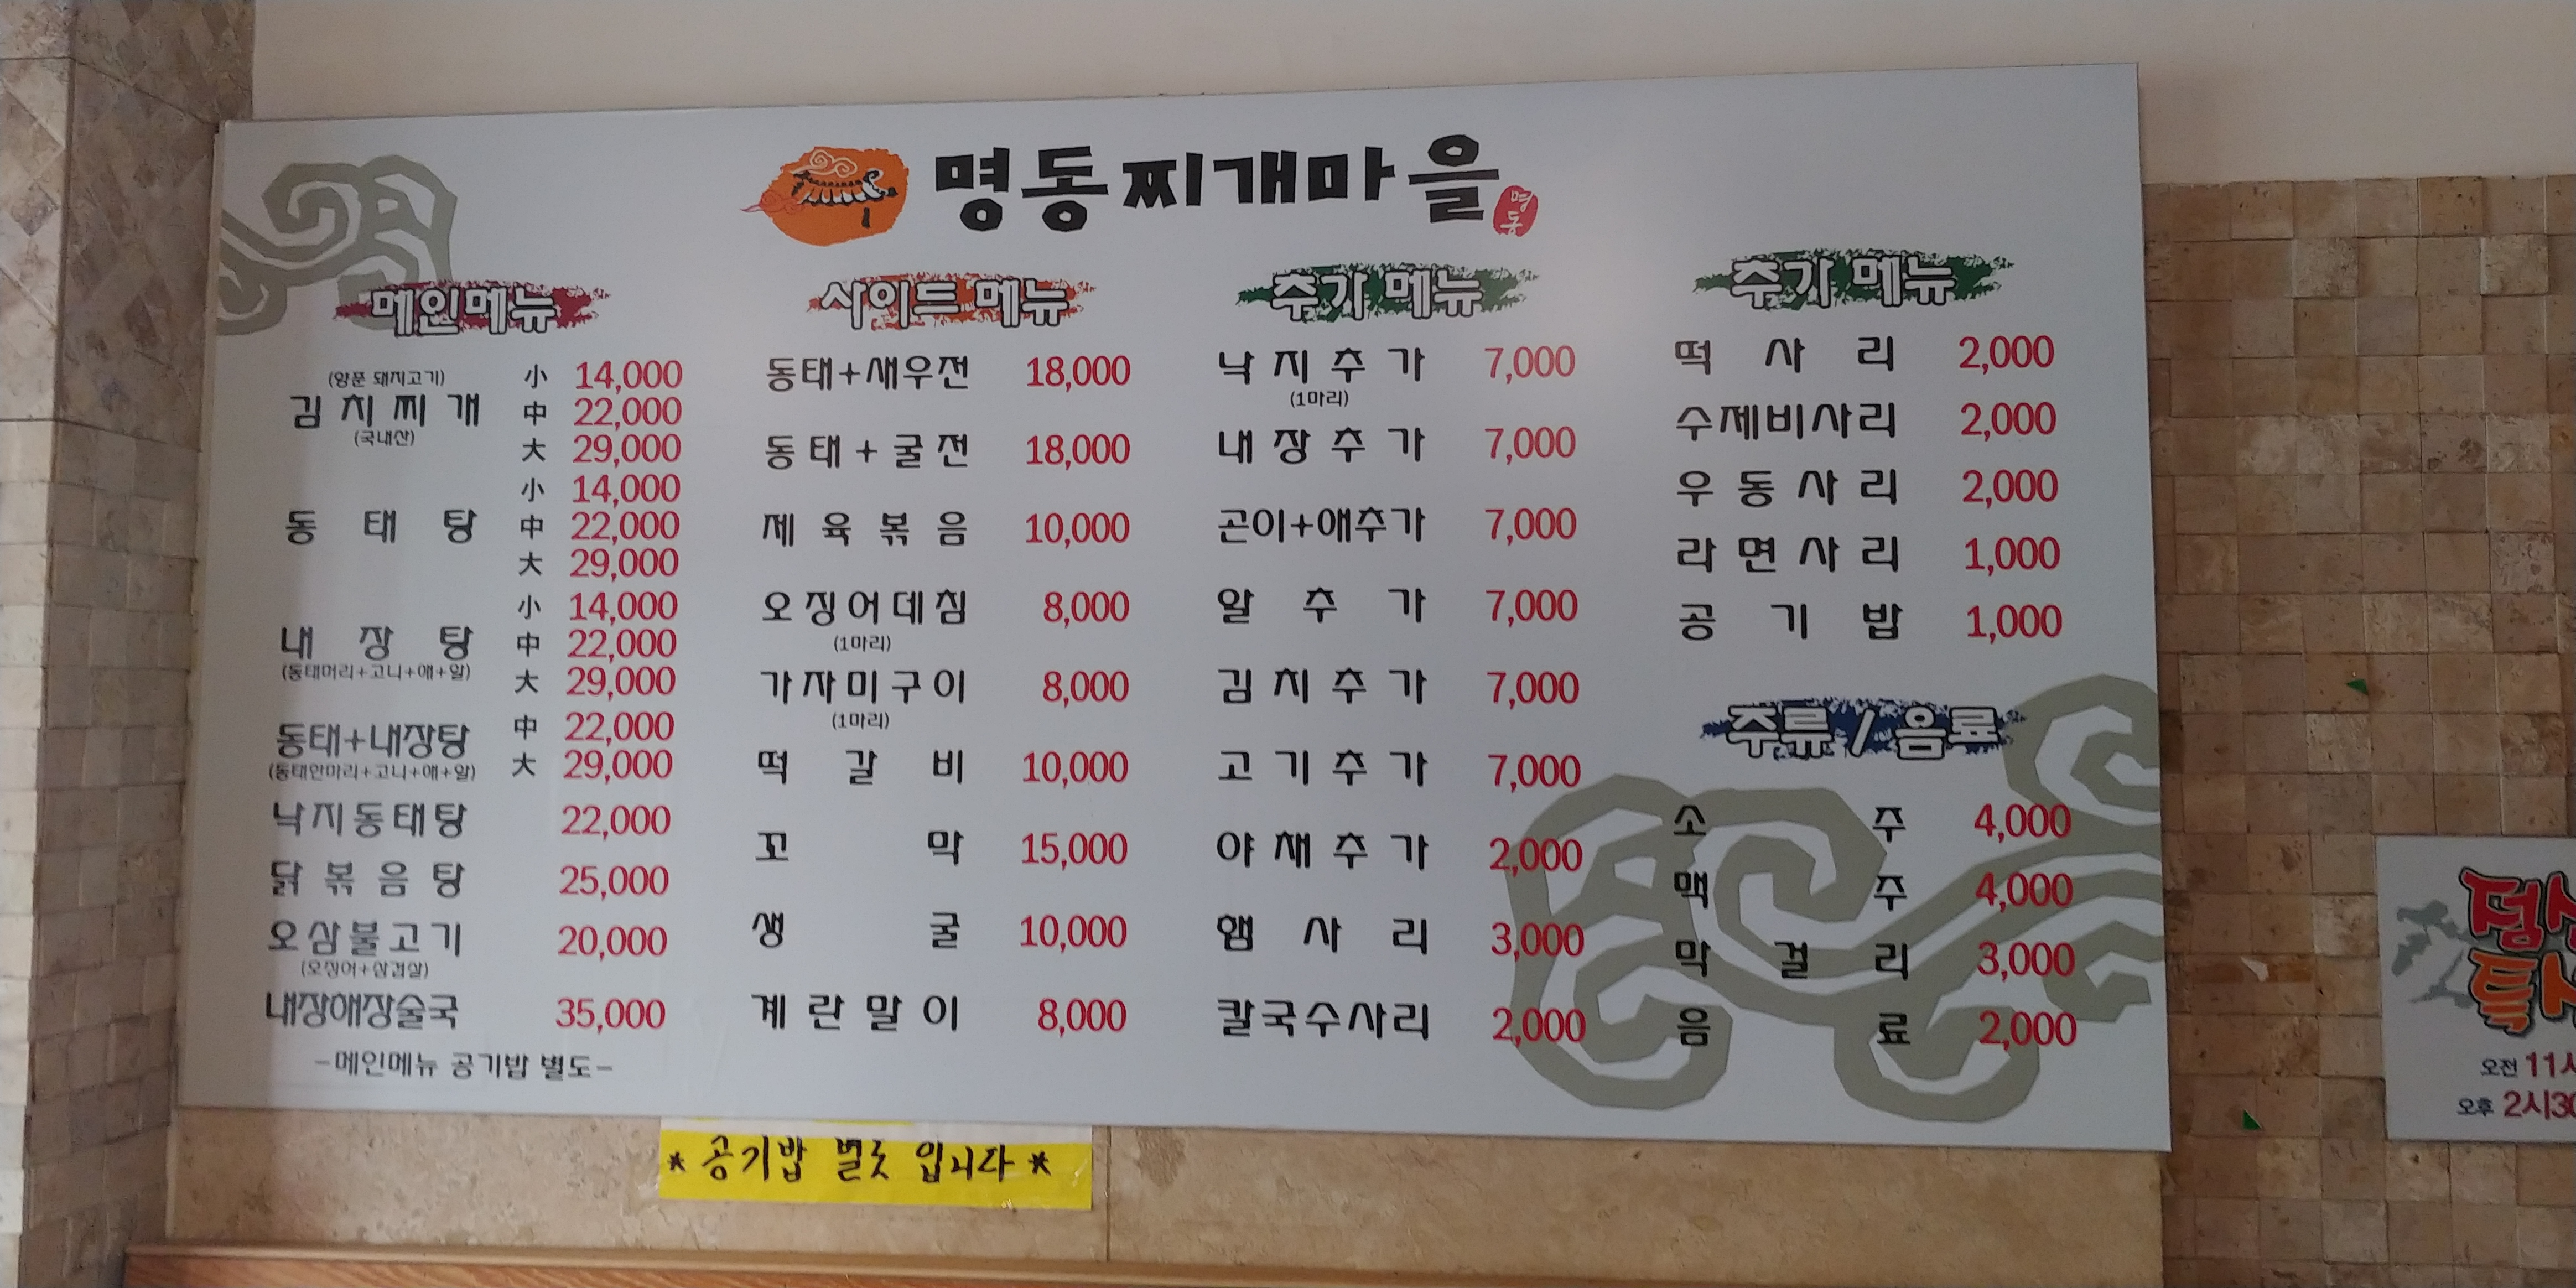 명동찌개마을
명동
메인메뉴
(양푼 돼지고기) 小 14,000
김치찌개 中 22,000
(국내산) 大 29,000
小 14,000
동태탕 中 22,000
大 29,000
小 14,000
내장탕 中 22,000
(동태머리+고니+애+알) 大 29,000
中 22,000
동태+내장탕
(동태한마리+고니+애+알) 大 29,000
낙지동태탕 22,000
닭볶음탕 25,000
오삼불고기 20,000
(오징어+삼겹살)
내장애장술국 35,000
-메인메뉴 공기밥 별도-
사이드 메뉴
동태+새우전 18,000
동태+굴전 18,000
제육볶음 10,000
오징어데침 8,000
(1마리)
가자미구이 8,000
(1마리)
떡갈비 10,000
꼬막 15,000
생굴 10,000
계란말이 8,000
추가 메뉴
낙지추가 7,000
(1마리)
내장추가 7,000
곤이+애추가 7,000
알추가 7,000
김치추가 7,000
고기추가 7,000
야채추가 2,000
햄사리 3,000
칼국수사리 2,000
추가 메뉴
떡사리 2,000
수제비사리 2,000
우동사리 2,000
라면사리 1,000
공기밥 1,000
주류 / 음료
소주 4,000
맥주 4,000
막걸리 3,000
음료 2,000
* 공기밥 별도 입니다 *
오전 11시
오후 2시30